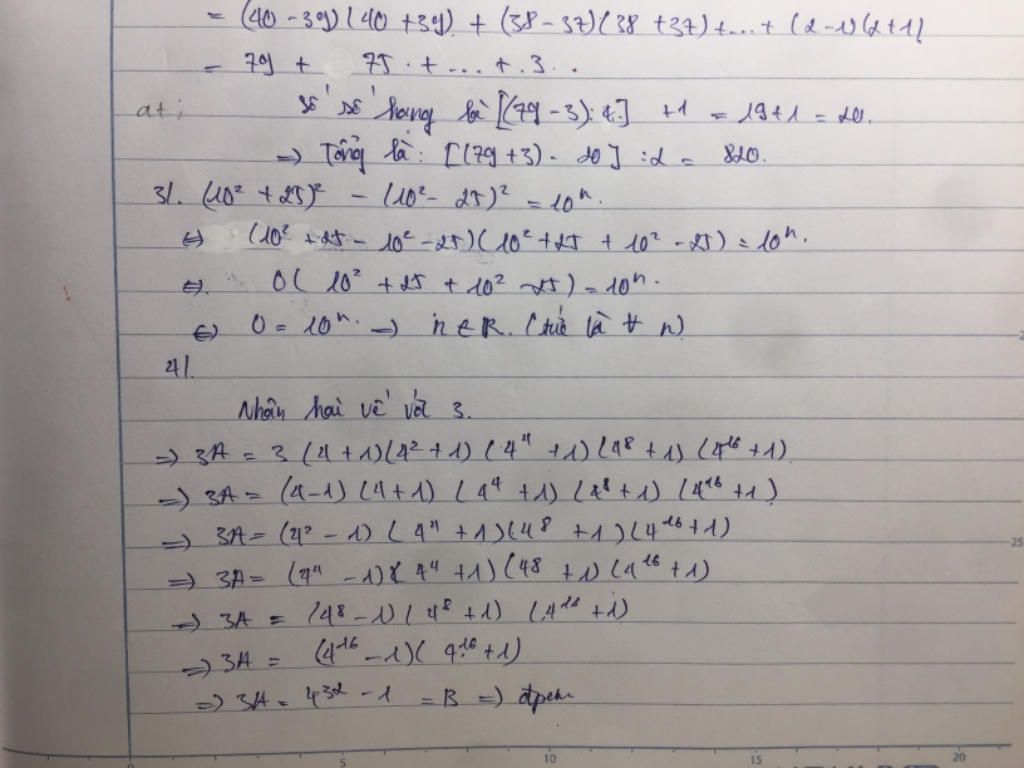 = (40 - 39)(40 + 39) + (38 - 37)(38 + 37) + ... + (2 - 1)(2 + 1)
= 79 + 75 + ... + 3.
số số hạng là [(79 - 3) : 4] + 1 = 19 + 1 = 20.
=> Tổng là: [(79 + 3) . 20] : 2 = 820.
3/. (10² + 25)² - (10² - 25)² = 10ⁿ.
⇔ (10² + 25 - 10² - 25)(10² + 25 + 10² - 25) = 10ⁿ.
⇔. 0( 10² + 25 + 10² - 25) = 10ⁿ.
⇔ 0 = 10ⁿ. → n ∈ R. (tức là ∀ n)
4/.
Nhân hai vế với 3.
=> 3A = 3 (4 + 1)(4² + 1) (4⁴ + 1)(4⁸ + 1) (4¹⁶ + 1)
=> 3A = (4 - 1) (4 + 1) (4⁴ + 1) (4⁸ + 1) (4¹⁶ + 1)
=> 3A = (4² - 1) (4⁴ + 1)(4⁸ + 1)(4¹⁶ + 1)
=> 3A = (4⁴ - 1)(4⁴ + 1)(48 + 1)(4¹⁶ + 1)
=> 3A = (4⁸ - 1)(4⁸ + 1) (4¹⁶ + 1)
=> 3A = (4¹⁶ - 1)(4¹⁶ + 1)
=> 3A = 4³² - 1 = B => đpcm
25
5 10 15 20